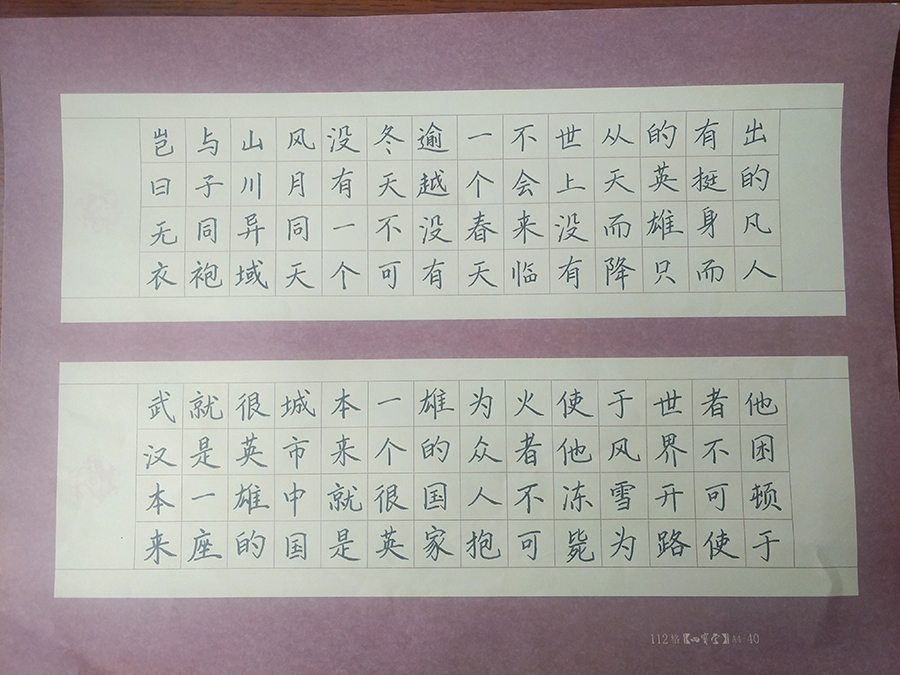 岂曰无衣
与子同袍
山川异域
风月同天
没有一个
冬天不可
逾越没有
一个春天
不会来临
世上没有
从天而降
的英雄只
有挺身而
出的凡人
武汉本来
就是一座
很英雄的
城市中国
本来就是
一个很英
雄的国家
为众人抱
火者不可
使他冻毙
于风雪为
世界开路
者不可使
他困顿于
112格【四宝堂】A4-40